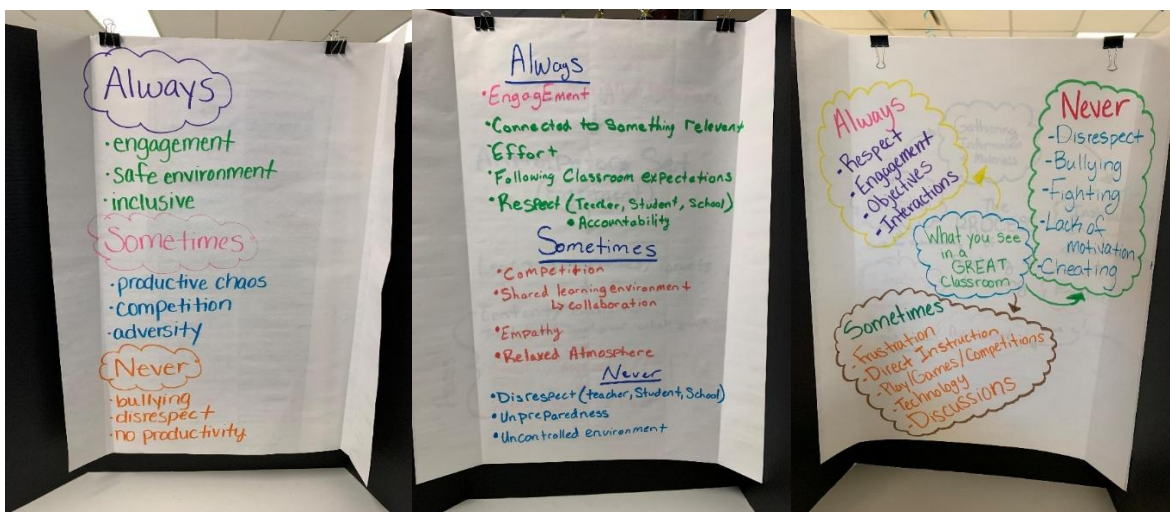 Always
• engagement
• safe environment
• inclusive
Sometimes
• productive chaos
• competition
• adversity
Never
• bullying
• disrespect
• no productivity
Always
• EngagEment
• Connected to something relevant
• Effort
• Following Classroom expectations
• Respect (Teacher, Student, School)
• Accountability
Sometimes
• Competition
• Shared learning environment
↳ collaboration
• Empathy
• Relaxed Atmosphere
Never
• Disrespect (teacher, Student, School)
• Unpreparedness
• Uncontrolled environment
Always
- Respect
- Engagement
- Objectives
- Interactions
Never
- Disrespect
- Bullying
- Fighting
- Lack of
motivation
- Cheating
What you see
in a
GREAT
Classroom
Sometimes
- Frustration
- Direct Instruction
- Play/Games/Competitions
- Technology
- Discussions
Gathering
Information
Materials